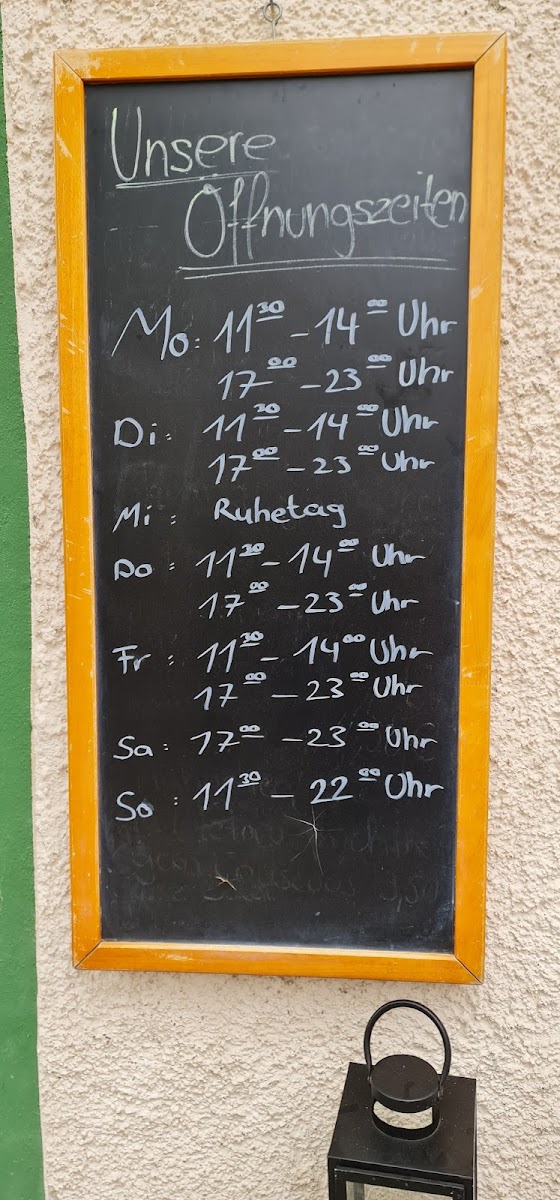 Unsere
Öffnungszeiten
Mo: 11³⁰ - 14⁰⁰ Uhr
17⁰⁰ - 23⁰⁰ Uhr
Di: 11³⁰ - 14⁰⁰ Uhr
17⁰⁰ - 23⁰⁰ Uhr
Mi: Ruhetag
Do: 11³⁰ - 14⁰⁰ Uhr
17⁰⁰ - 23⁰⁰ Uhr
Fr: 11³⁰ - 14⁰⁰ Uhr
17⁰⁰ - 23⁰⁰ Uhr
Sa: 17⁰⁰ - 23⁰⁰ Uhr
So: 11³⁰ - 22⁰⁰ Uhr